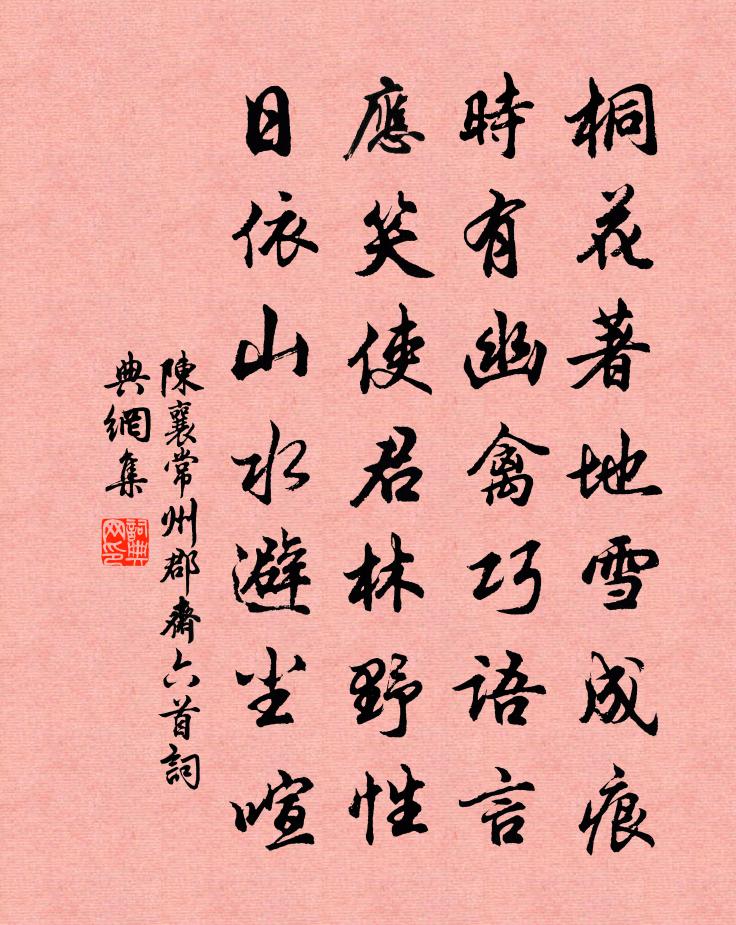 桐花著地雪成痕
時有幽禽巧語言
應笑使君林野性
日依山水避尘喧
陳襄常州郡齋六首詞
典網集
詞典
网印